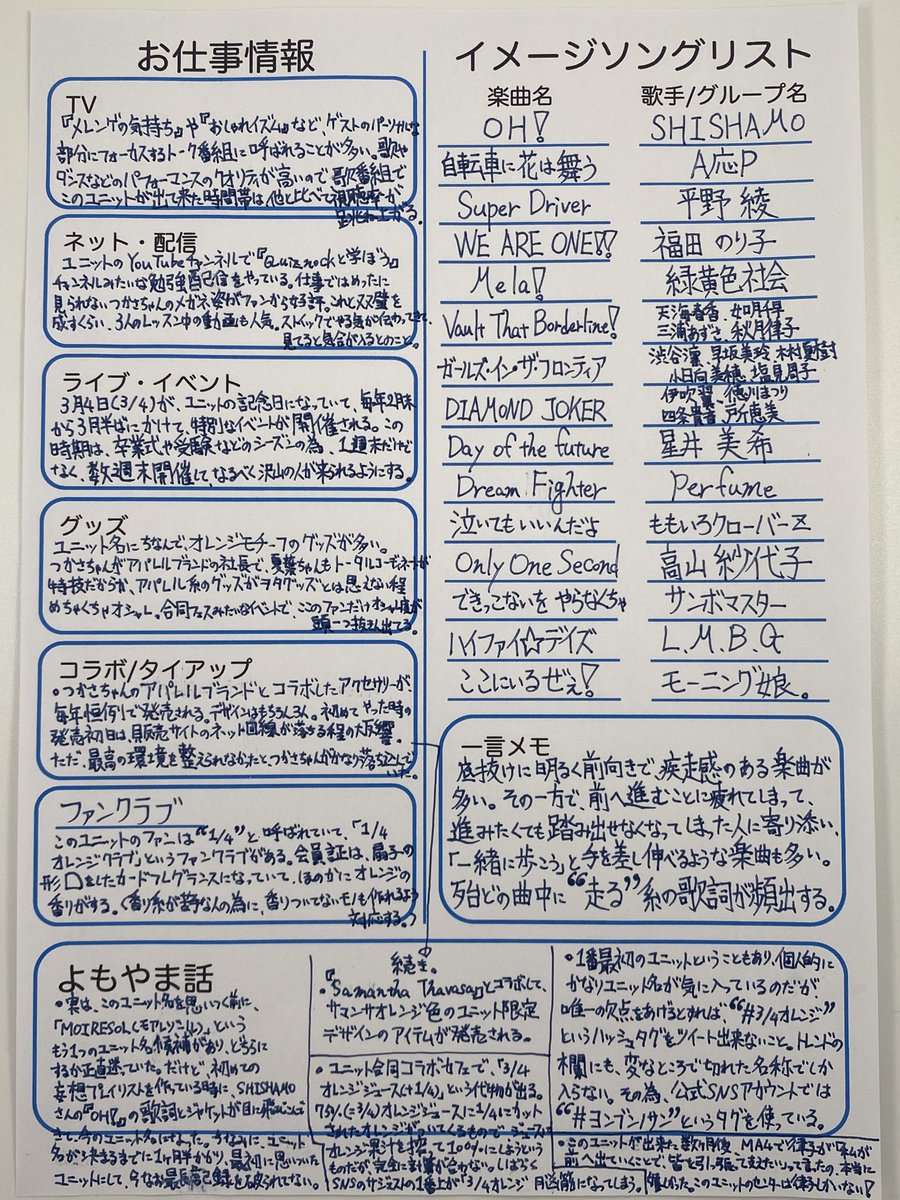 お仕事情報
TV
『メレンゲの気持ち』や『おしゃれイズム』など、ゲストのパーソナルな
部分にフォーカスするトーク番組に呼ばれることが多い。歌や
ダンスなどのパフォーマンスのクオリティが高いので、歌番組で
このユニットが出て来た時間帯は他と比べて視聴率が
跳ね上がる。
ネット・配信
ユニットのYouTubeチャンネルで『Quiz nockと学ぼう』
チャンネルみたいな勉強配信をやっている。仕事ではめったに
見られないつかさちゃんのメガネ姿がファンから好評。これと双璧を
成すくらい、3人のレッスン中の動画も人気。ストイックでやる気が伝わってきて、
見てると気合が入るとのこと。
ライブ・イベント
3月4日(3/4)が、ユニットの記念日になっていて、毎年2月末
から3月半ばにかけて、特別なイベントが開催される。この
時期は、卒業式や受験などのシーズンの為、1週末だけで
なく、数週末開催して、なるべく沢山の人が来られるようにする。
グッズ
ユニット名にちなんで、オレンジモチーフのグッズが多い。
つかさちゃんがアパレルブランドの社長で、夏葉ちゃんもトータルコーディネートが
特技だからか、アパレル系のグッズがヲタグッズとは思えない程
めちゃくちゃオシャレ。合同フェスみたいなイベントで、ここのファンだけオシャレ度が
頭一つ抜きん出てる。
コラボ/タイアップ
•つかさちゃんのアパレルブランドとコラボしたアクセサリーが、
毎年恒例で発売される。デザインはもちろん3人。初めてやった時の
発売初日は、販売サイトのネット回線が落ちる程の大反響。
ただ、最高の環境を整えられなかったとつかさちゃんがかなり落ち込んで
いた。
ファンクラブ
このユニットのファンは“1/4”と呼ばれていて、「1/4
オレンジクラブ」というファンクラブがある。会員証は、扇子の
形をしたカードフレグランスになっていて、ほのかにオレンジの
香りがする。(香り系が苦手な人の為に、香りついてないモノも作れるよう
対応する。)
イメージソングリスト
楽曲名 歌手/グループ名
OH! SHISHAMO
自転車に花は舞う A応P
Super Driver 平野 綾
WE ARE ONE!! 福田 のり子
Mela! 緑黄色社会
Vault That Borderline! 天海春香、如月千早
三浦あずさ、秋月律子
ガールズ・イン・ザ・フロンティア 渋谷凛、早坂美玲、木村夏樹
小日向美穂、塩見周子
DIAMOND JOKER 伊吹翼、徳川まつり
四条貴音、所恵美
Day of the future 星井 美希
Dream Fighter Perfume
泣いてもいいんだよ ももいろクローバーZ
Only One Second 高山 紗代子
できっこないを やらなくちゃ サンボマスター
ハイファイ☆デイズ L.M.B.G
ここにいるぜぇ! モーニング娘。
一言メモ
底抜けに明るく前向きで、疾走感のある楽曲が
多い。その一方で、前へ進むことに疲れてしまって、
進みたくても踏み出せなくなってしまった人に寄り添い、
「一緒に歩こう」と手を差し伸べるような楽曲も多い。
殆どの曲中に“走る”系の歌詞が頻出する。
よもやま話
•実は、このユニット名を思いつく前に、
「MOIRESOL(モアレソール)」という
もう1つのユニット名候補があり、どちらに
するか正直迷っていた。だけど、初めての
妄想プレイリストを作っている時に、SHISHAMO
さんの『OH!』の歌詞とジャケットが目に飛びこんで
きて、今のユニット名になった。ちなみに、ユニット
名が決まるまでに1ヶ月半かかり、最初に思いついた
ユニットにして、今なお最長記録を破られてない。
続き。
•『Samantha Thavasa』とコラボして、
サマンサオレンジ色のユニット限定
デザインのアイテムが発売される。
•ユニット合同コラボカフェで、「3/4
オレンジジュース(+1/4)」という代物が出る。
75%(=3/4)オレンジジュースに1/4にカット
されたオレンジがついてくるもので、ジュースに
オレンジ果汁を搾って100%にしようという
ものだが、完全に計算が合わない。しばらく
SNSのサジェストの1番上が「3/4オレンジ 月」になってしまう。
•1番最初のユニットということもあり、個人的に
かなりユニット名が気に入っているのだが、
唯一の欠点をあげるとすれば、“#3/4オレンジ”
というハッシュタグをツイート出来ないこと。トレンドの
欄にも、変なところで切れた名称でしか
入らない。その為、公式SNSアカウントでは
“#ヨンブンノサン”というタグを使っている。
•このユニットが出来た数カ月後、MA4で律子が『私が
前へ出ていくことで、皆を引っ張ってまえたい』って言ってたの、本当に
このユニットのセンターは律子しかいない!